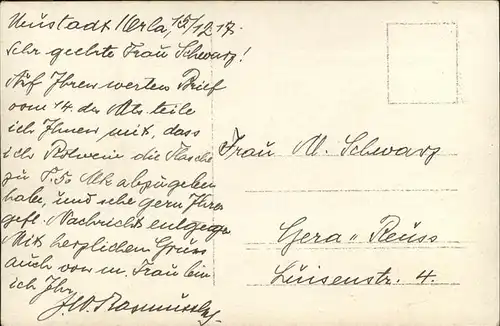 Neustadt Orla, 15/12 17.
Sehr geehrte Frau Schwarz!
Auf Ihren werten Brief
vom 14. des Mts. teile
ich Ihnen mit, dass
ich Rotwein die Flasche
zu 7.50 Mk abzugeben
habe, und sehe gern Ihrer
gefl. Nachricht entgegen
Mit herzlichem Gruss
auch von m. Frau bin
ich Ihr
Frau M. Schwarz
Gera-Reuss
Luisenstr. 4.